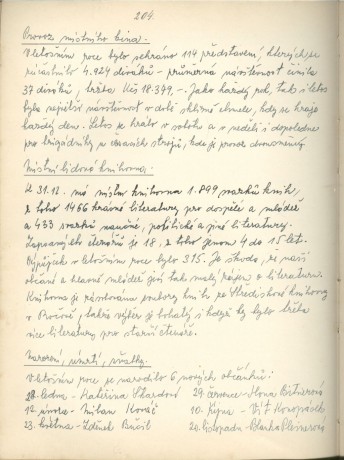 204.
Provoz místního kina:
V letošním roce bylo sehráno 114 představení, kterých se
zúčastnilo 4.924 diváků – průměrná návštěvnost činila
37 diváků, tržba Kčs 18.379,-. Jako každý rok, tak i letos
byla největší návštěvnost v době sklizně chmele, kdy se hraje
každý den. Letos se hrálo v sobotu a v neděli i dopoledne
pro brigádníky u česacích strojů, kde je provoz dvousměnný.
Místní lidová knihovna:
K 31.12. má místní knihovna 1.899 svazků knih,
z toho 1466 krásné literatury pro dospělé a mládež
a 433 svazků naučné, politické a jiné literatury.
Zapsaných čtenářů je 78, z toho jenom 4 do 15 let.
Výpůjček v letošním roce bylo 315. Je škoda, že naši
občané a hlavně mládež jeví tak malý zájem o literaturu.
Knihovna je zásobována soubory knih ze Střediskové knihovny
v Ročově, takže výběr je bohatý i když by bylo třeba
více literatury pro starší čtenáře.
Narození, úmrtí, svatby.
V letošním roce se narodilo 6 nových občánků:
28. ledna - Kateřina 29. července - Ilona
12. února - Milan 10. října - Vít Konopásek
23. května - Zdeněk 20. listopadu - Blanka